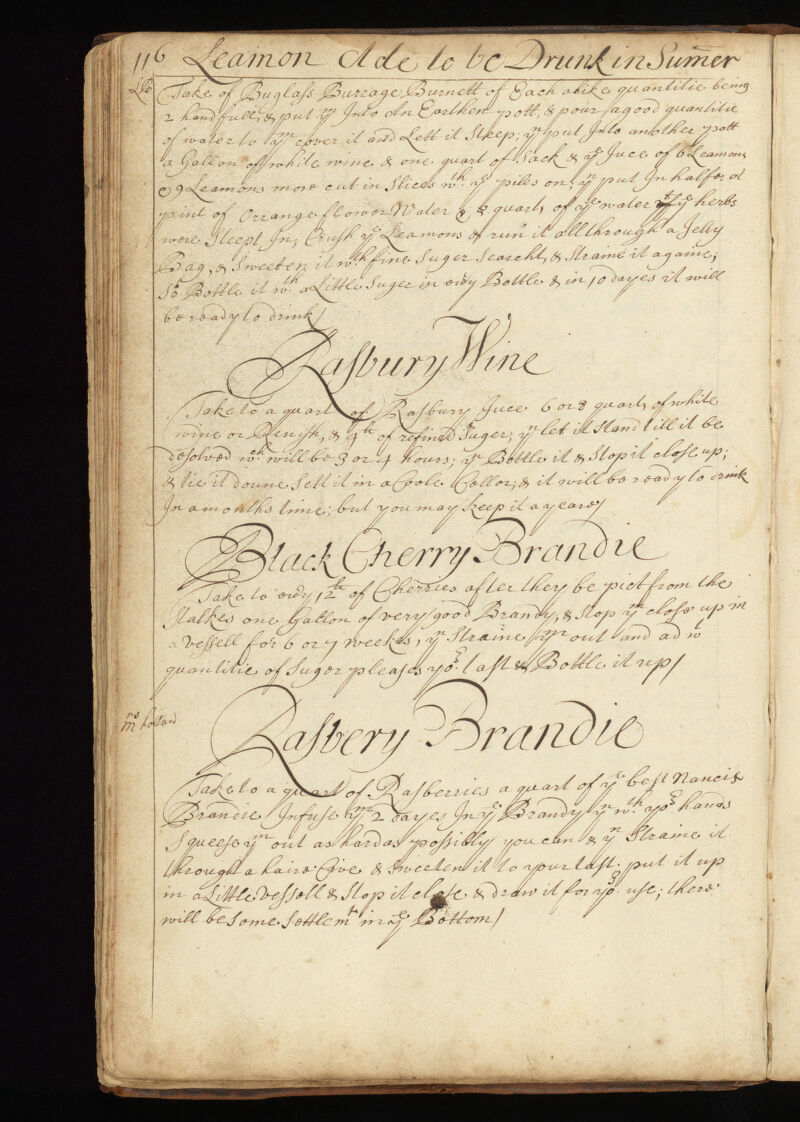 116 Leamon Ade to be Drunk in Sumer
Take of Buglass Burrage Burnett of Each alike quantitie being
2 handfull; & put ym Into An Earthen pott, & pour a good quantitie
of water to ym cover it and Lett it Steep; yn put Into another pott
a Gallon of white wine & one quart of Sack & ye Juce of 6 Leamons
& 9 Leamons more cut in Slices wth. ye piles on; yn put In halfe a
pint of Orrange flower Water & 2 quarts of ye water yt ye herbs
were Steept In; Crush ye Leamons & run it all through a Jelly
Bag, & Sweeten it wth fine Suger Searcht, & Straine it againe;
So Bottle it wth. a Little Suger in evry Bottle & in 10 dayes it will
be ready to drink/
Rasbury Wine
Take to a quart of Rasbury Juce 6 or 8 quarts of white
wine or Renish, & 4lb of refined Suger; yn let it Stand till it be
desolved wch will be 3 or 4 hours; yn Bottle it & Stop it close up;
& tie it doune Sett it in a Coole Cellor; & it will be ready to drink
In a months time; but you may keep it a yeare/
Black Cherry Brandie
Take to evry 12lb of Cherries after they be pict from the
Stalkes one Gallon of very good Brandy, & Stop ym close up in
a vessell for 6 or 7 weekes, yn Straine ym out and ad wt
quantitie of Suger pleases yor. tast & Bottle it up/
mrs
Rasbery Brandie
Take to a quart of Rasberries a quart of ye best Nancis
Brandie Infuse ym 2 dayes In ye Brandy yn wth yor hands
Squeese ym out as hard as possibly you can & yn Straine it
through a haire Cive & Sweeten it to your tast. put it up
in a Little vessell & Stop it close & draw it for yor use; there
will be Some Settlemt in ye Bottom/